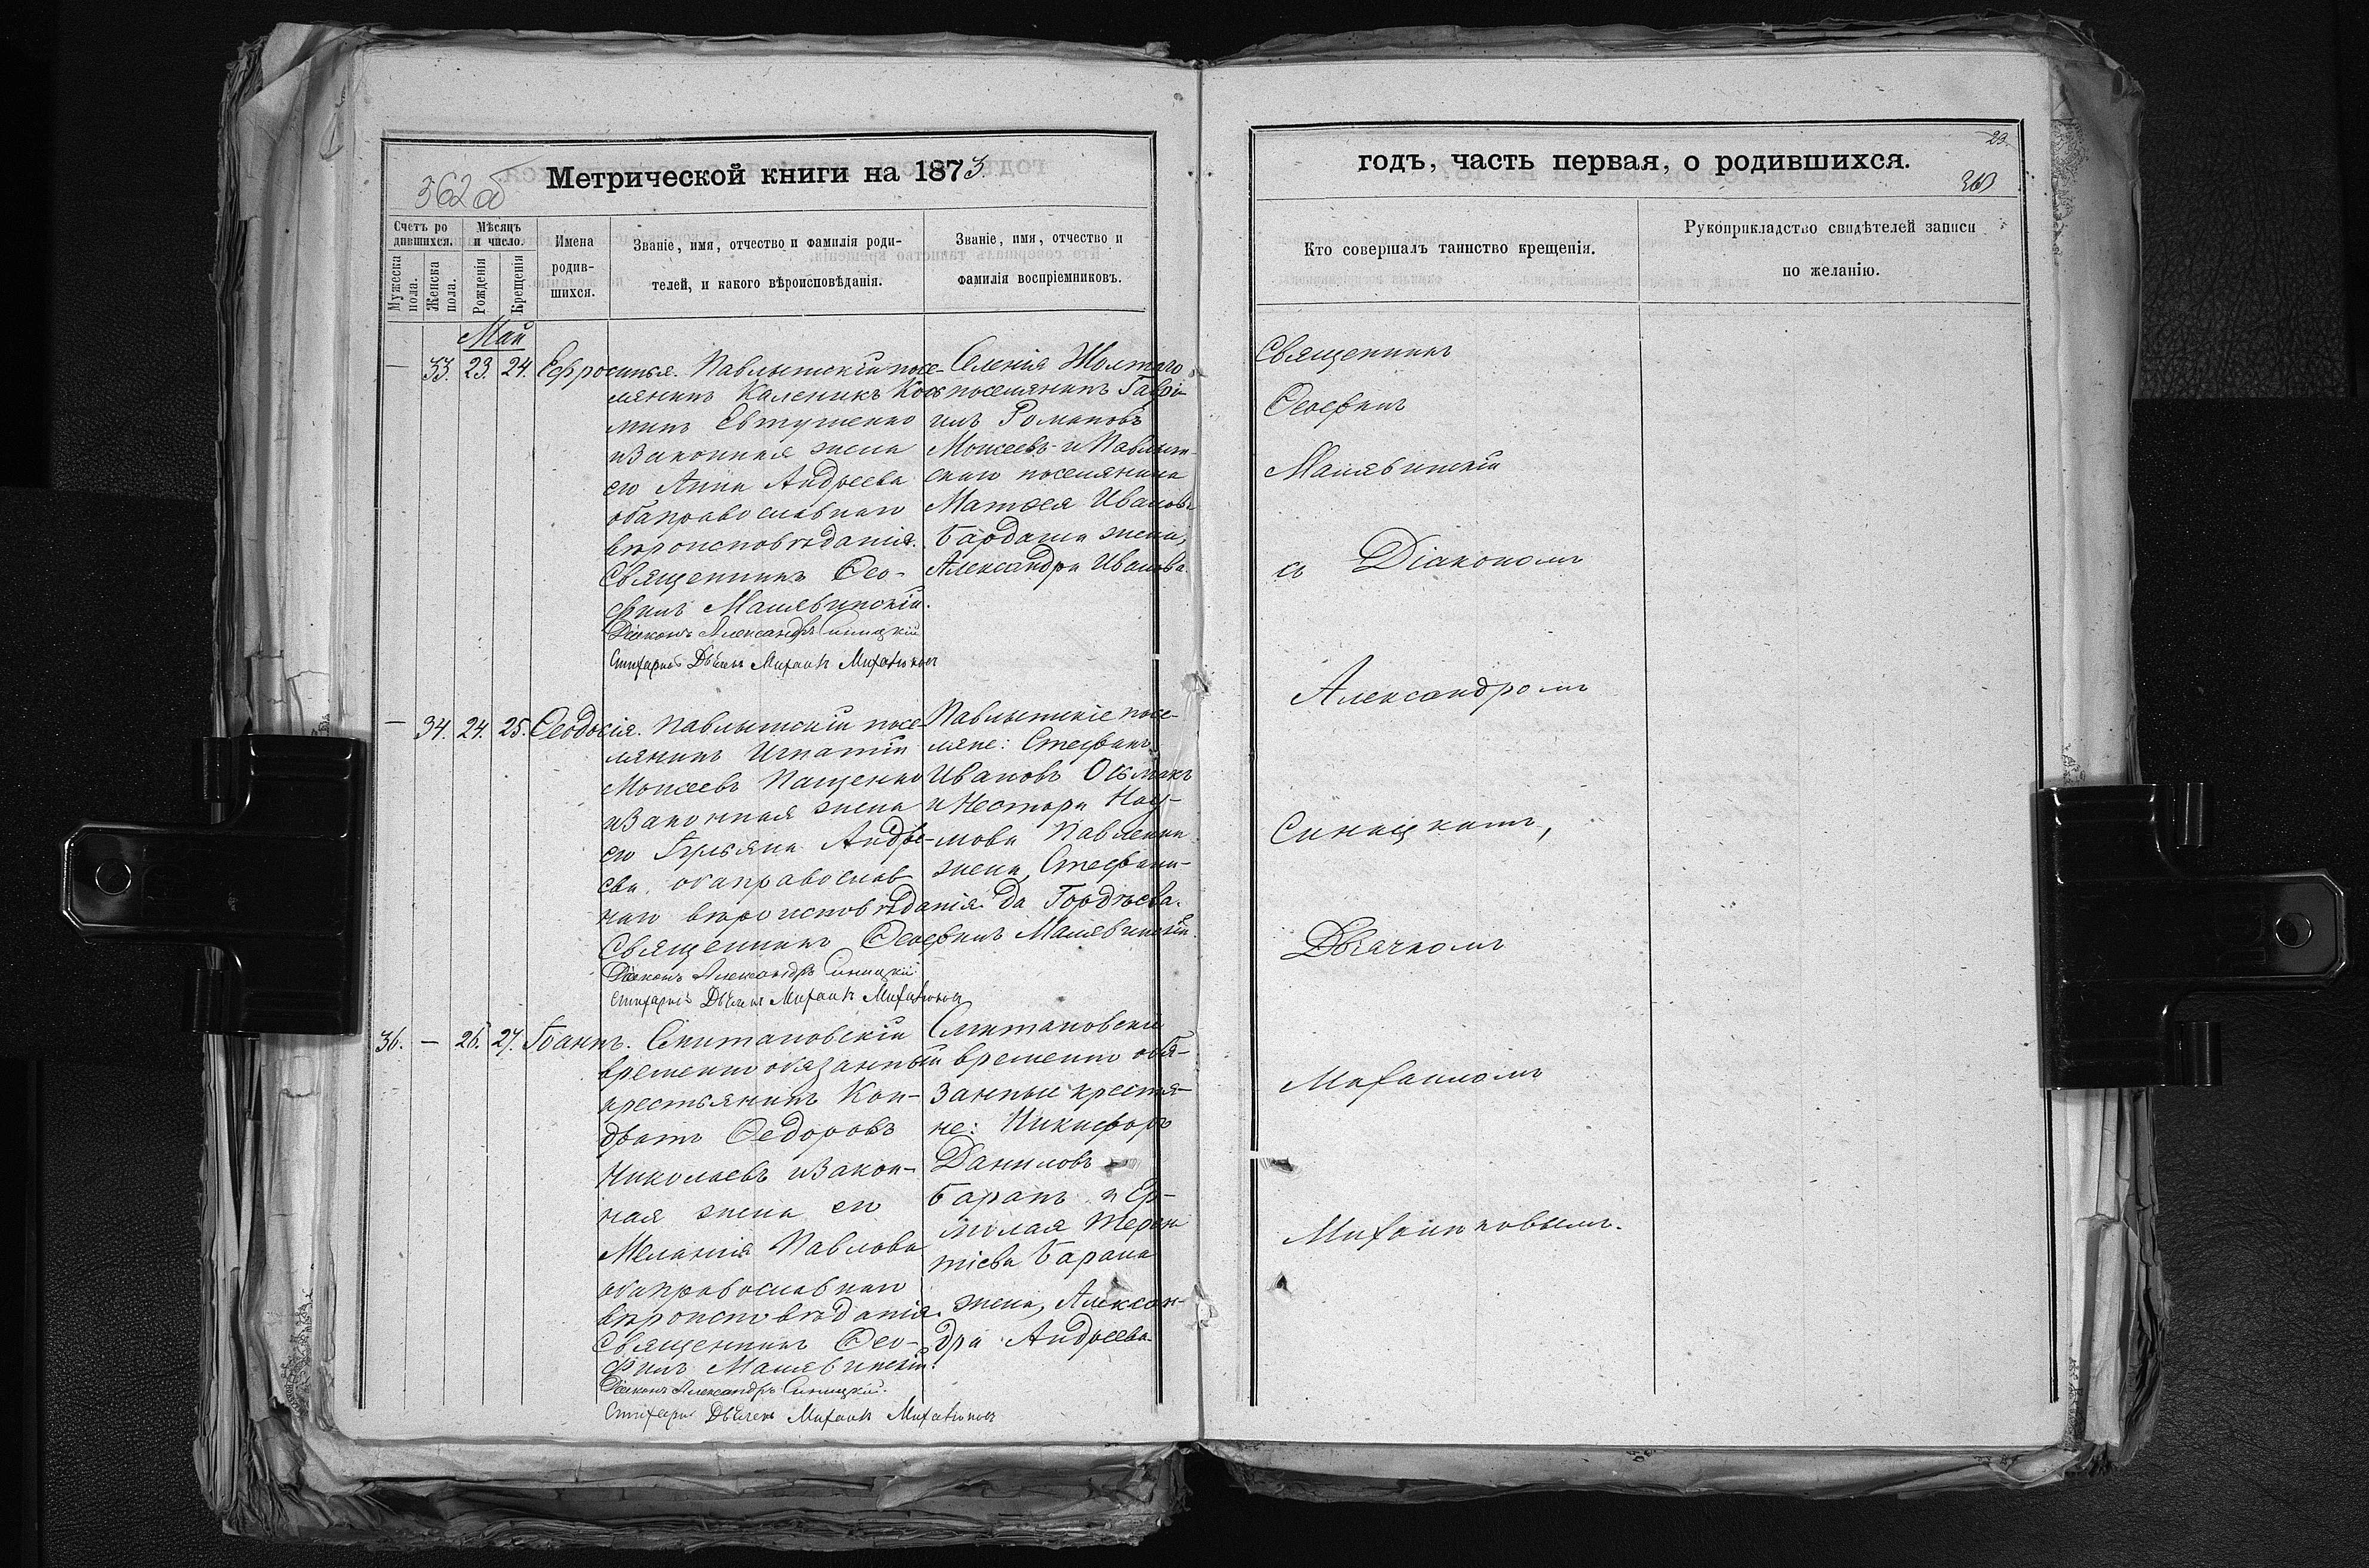 362 об
Метрической книги на 1873
Счетъ ро
дившихся.
Мѣсяцъ
и число.
Имена
родив-
шихся.
Званіе, имя, отчество и фамилія роди-
телей, и какого вѣроисповѣданія.
Званіе, имя, отчество и
фамилія воспріемниковъ.
Мужеска
пола.
Женска
пола.
Рожденія
Крещенія
Май
— 33. 23. 24. Ефросинья.
Павлышскій посе-
лянинъ Каленикъ
Евтушенко
и законная жена
его Анна Андреева
оба православнаго
вѣроисповѣданія.
Священникъ Ѳео-
филъ
Діаконъ Александръ Синицкій
Стихарный Дьячекъ Михаилъ
Селенія Жолтаго
поселянинъ Гаврі-
илъ Романовъ
Моисеевъ и Павлыш-
скаго поселянина
Матѳея Иванова
Бардаша жена,
Александра Иванова.
— 34. 24. 25. Ѳеодосія.
Павлышскій посе-
лянинъ Игнатій
Моисеевъ Пащенко
и законная жена
его Ульяна Андре-
ева, оба православ
наго вѣроисповѣданія.
Священникъ Ѳеофилъ
Діаконъ Александръ Синицкій
Стихарный Дьячекъ Михаилъ
Павлышскіе посе-
ляне: Стефанъ
Ивановъ
и Нестора Нау-
мова Павленка
жена, Стефани-
да Гордѣева.
36. — 26. 27. Іоаннъ.
временно обязанный
крестьянинъ Кон-
дратъ Ѳедоровъ
Николаевъ и закон-
ная жена его
Меланія Павлова
оба православнаго
вѣроисповѣданія.
Священникъ Ѳео-
филъ
Діаконъ Александръ Синицкій.
Стихарный Дьячекъ Михаилъ
временно обя-
занные крестья-
не: Никифоръ
Даниловъ
Баранъ и Ер-
молая Терен
тіева Барана
жена, Алексан-
дра Андреева
годъ, часть первая, о родившихся.
23.
363
Кто совершалъ таинство крещенія.
Рукоприкладство свидѣтелей записи
по желанію.
Священникъ
Ѳеофилъ
съ Діакономъ
Александромъ
Синицкимъ,
Дьячкомъ
Михаиломъ